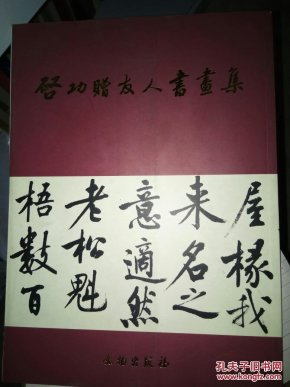 啓功贈友人書畫集
屋椽我
来名之
意適然
老松魁
梧數百
文物出版社
孔夫子旧书网